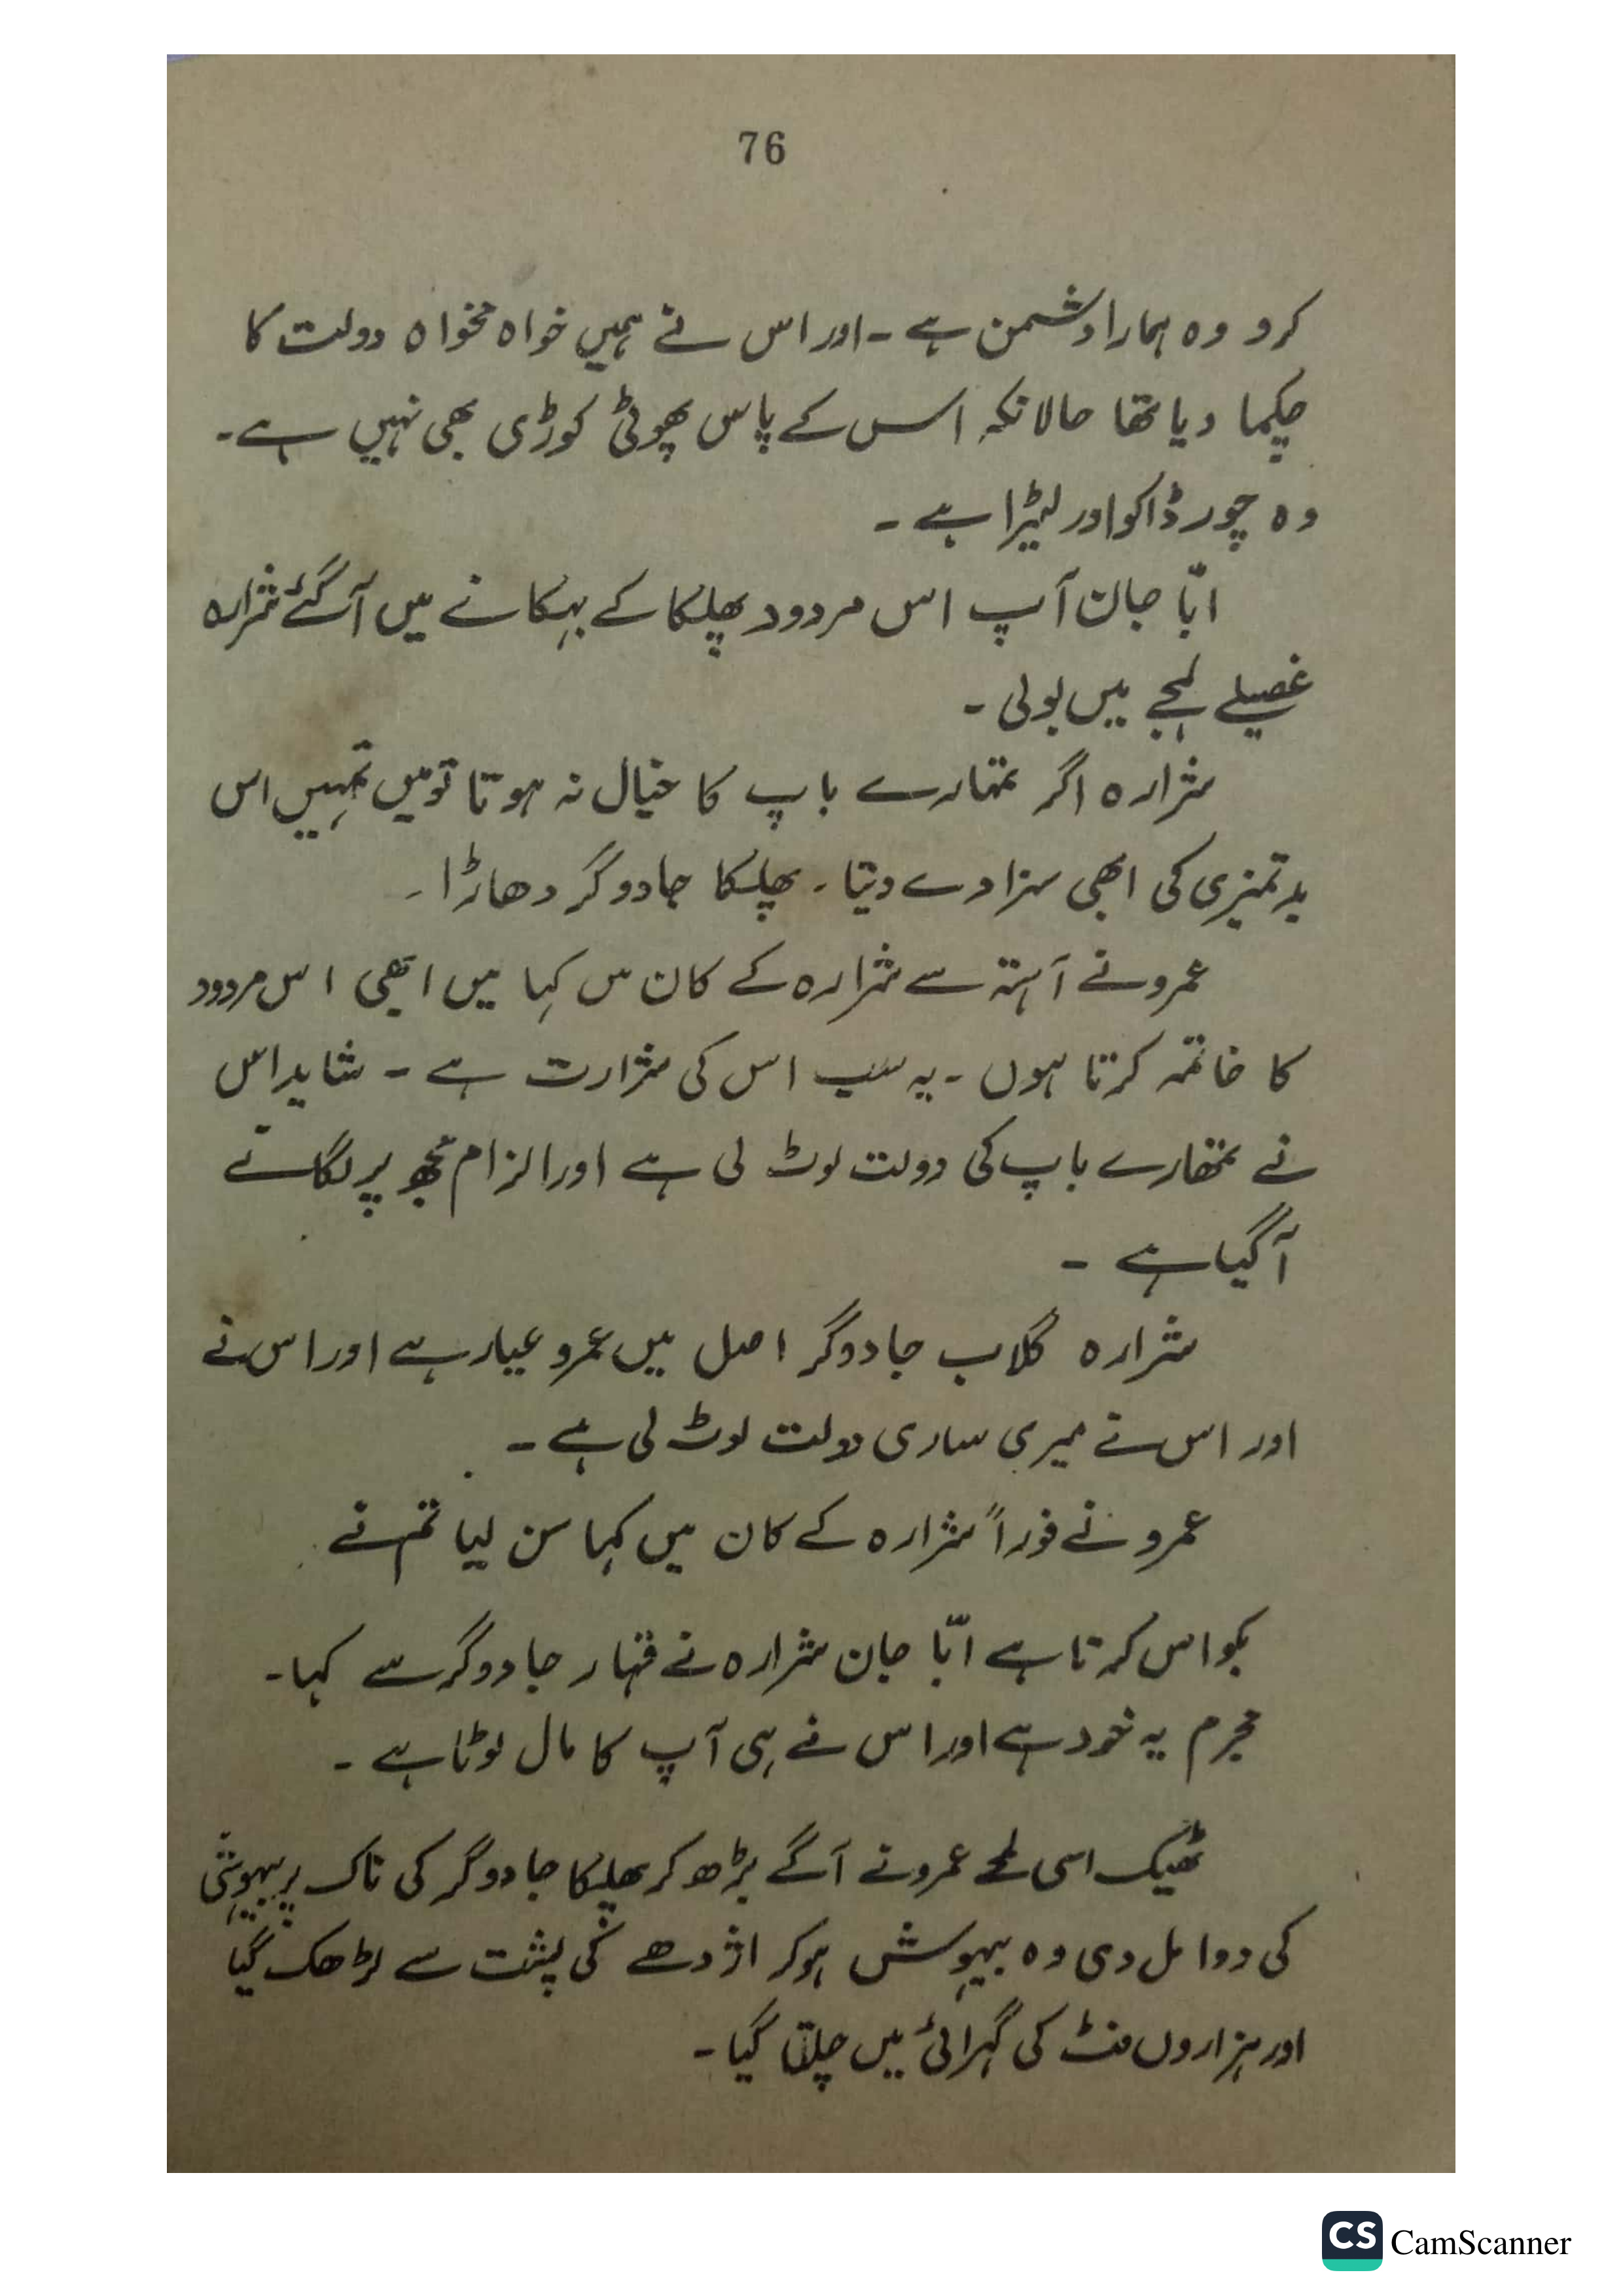 76
کرو وہ ہمارا دشمن ہے ۔ اور اس نے ہمیں خواہ مخواہ دولت کا
چکما دیا تھا حالانکہ اس کے پاس پھوٹی کوڑی بھی نہیں ہے ۔
وہ چور ڈاکو اور لٹیرا ہے ۔
ابّا جان آپ اس مردود پھلکا کے بہکانے میں آگئے شرارہ
غصیلے لہجے میں بولی ۔
شرارہ اگر تمہارے باپ کا خیال نہ ہوتا تو میں تمہیں اس
بدتمیزی کی ابھی سزا دے دیتا ۔ پھلکا جادوگر دھاڑا ۔
عمرو نے آہستہ سے شرارہ کے کان میں کہا میں ابھی اس مردود
کا خاتمہ کرتا ہوں ۔ یہ سب اس کی شرارت ہے ۔ شاید اس
نے تمھارے باپ کی دولت لوٹ لی ہے اور الزام مجھ پر لگانے
آگیا ہے ۔
شرارہ گلاب جادوگر اصل میں عمرو عیار ہے اور اس نے
اور اس نے میری ساری دولت لوٹ لی ہے ۔
عمرو نے فوراً شرارہ کے کان میں کہا سن لیا تم نے
بکواس کرتا ہے ابّا جان شرارہ نے قہار جادوگر سے کہا ۔
مجرم یہ خود ہے اور اس نے ہی آپ کا مال لوٹا ہے ۔
ٹھیک اسی لمحے عمرو نے آگے بڑھ کر پھلکا جادوگر کی ناک پر بیہوشی
کی دوا مل دی وہ بیہوش ہوکر اژدھے کی پشت سے لڑھک گیا
اور ہزاروں فٹ کی گہرائی میں چلتا گیا ۔
CS CamScanner